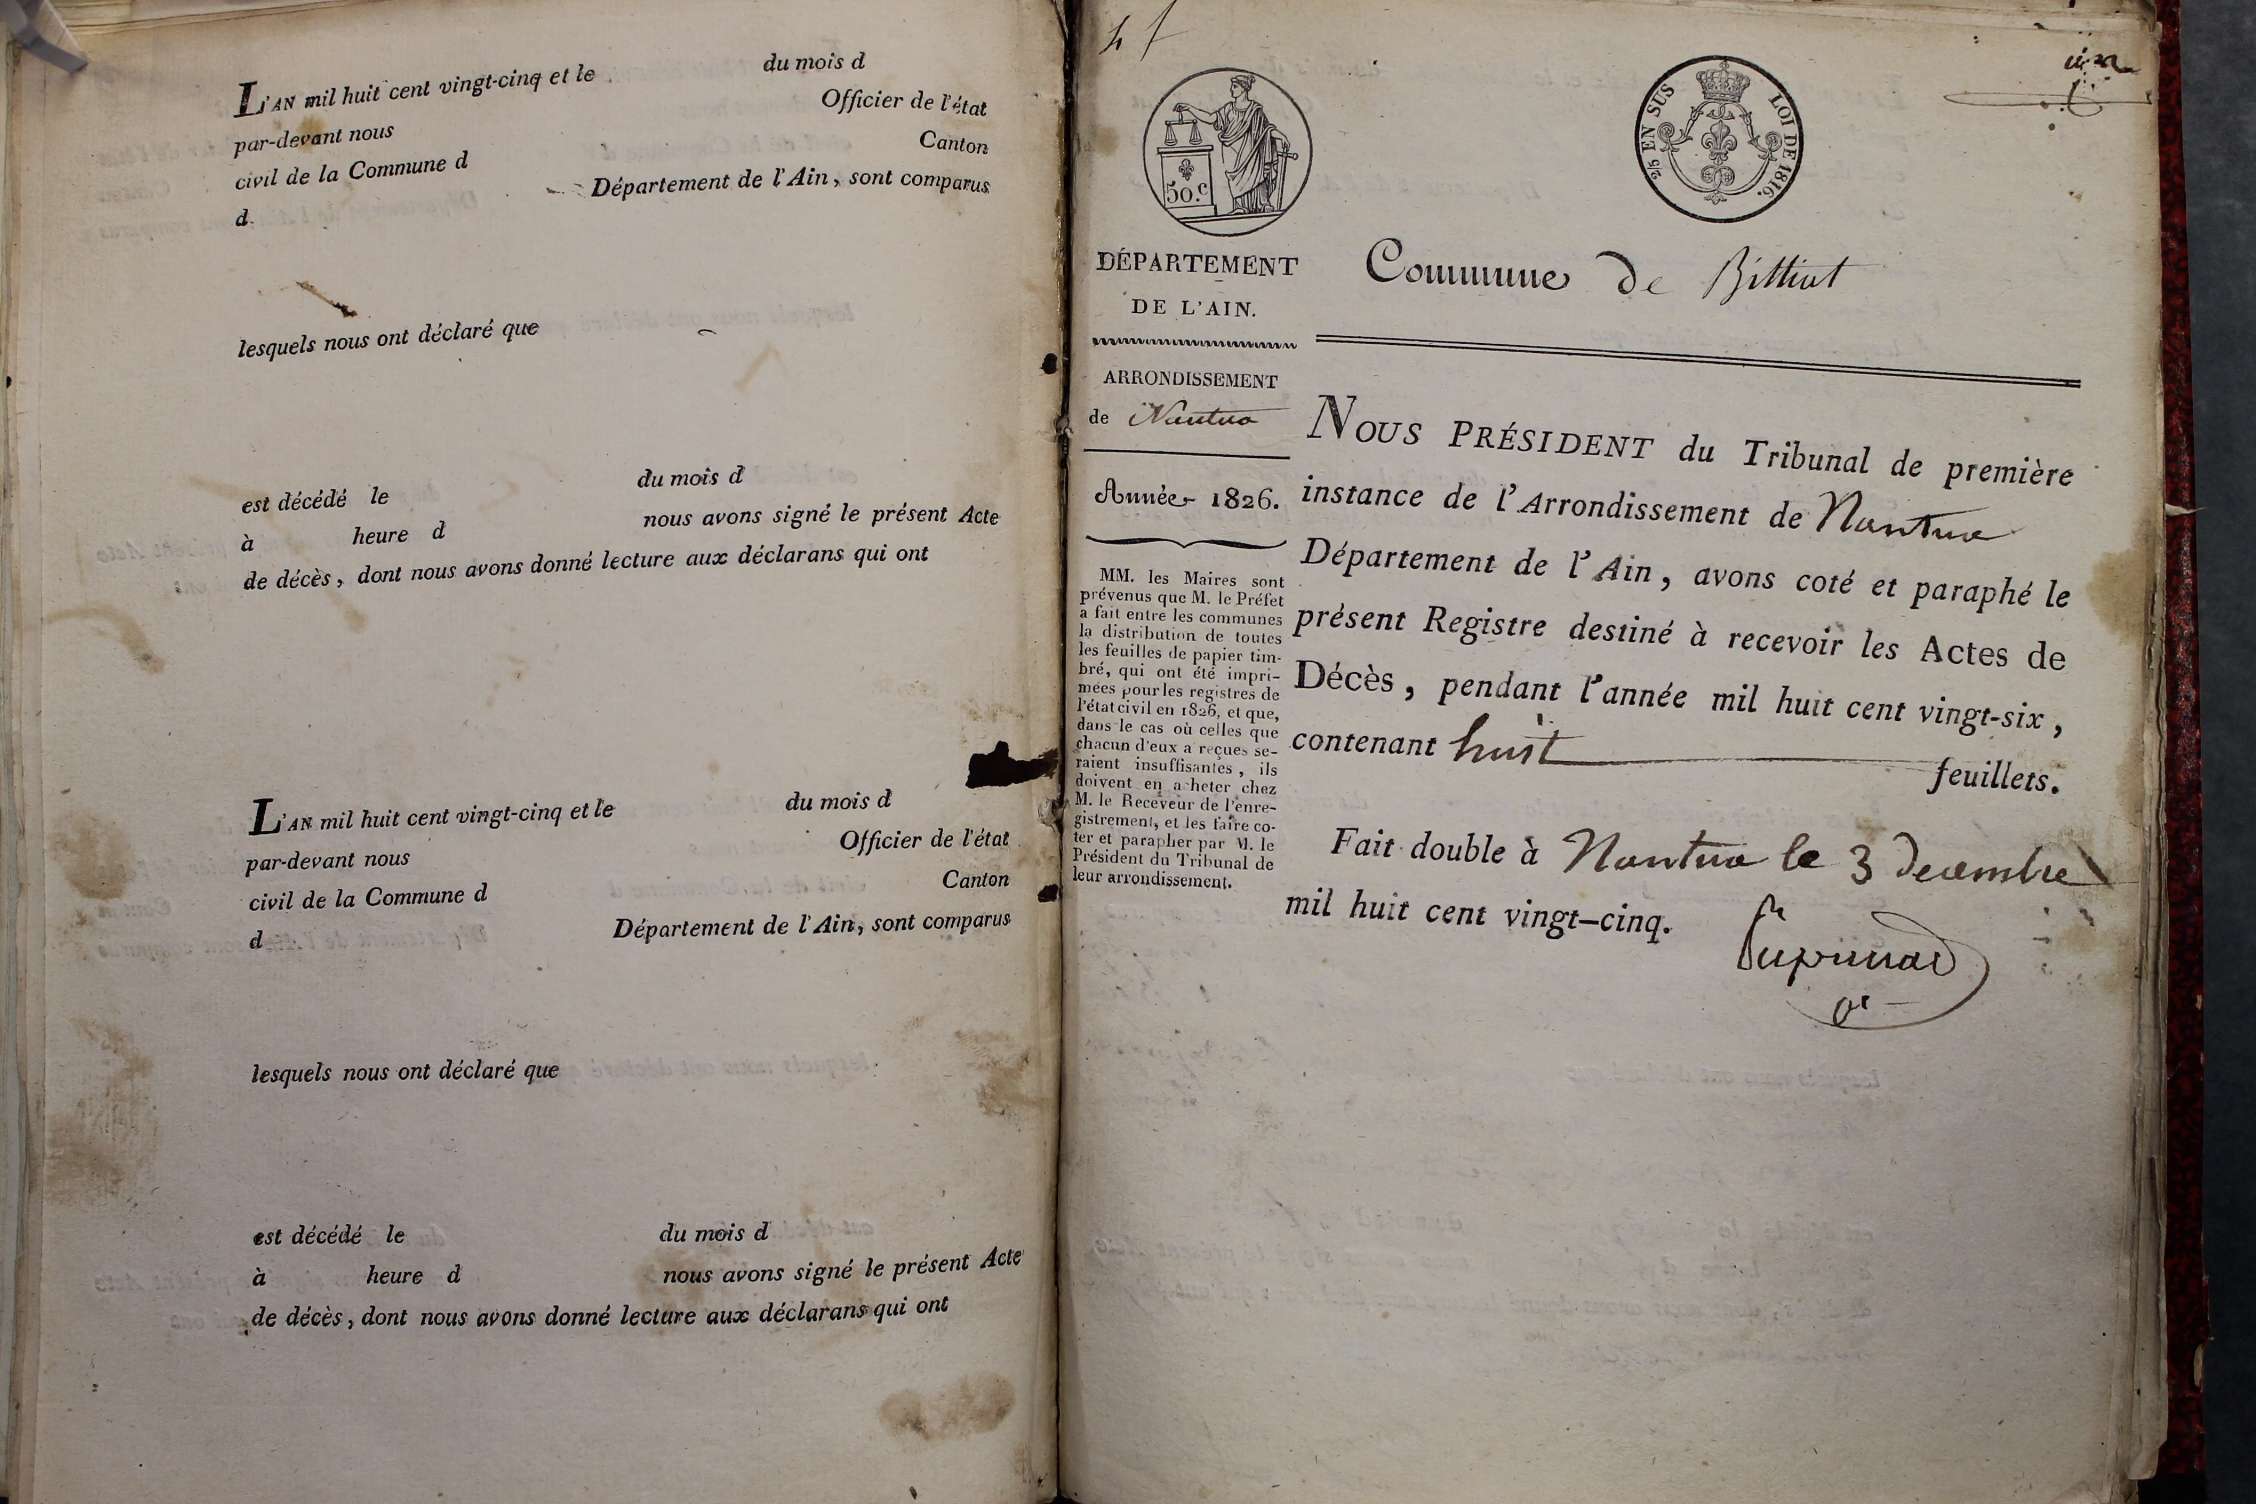 L'AN mil huit cent vingt-cinq et le du mois d
par-devant nous Officier de l'état
civil de la Commune d Canton
d Département de l'Ain, sont comparus
lesquels nous ont déclaré que
est décédé le du mois d
à heure d nous avons signé le présent Acte
de décès, dont nous avons donné lecture aux déclarans qui ont
L'AN mil huit cent vingt-cinq et le du mois d
par-devant nous Officier de l'état
civil de la Commune d Canton
d Département de l'Ain, sont comparus
lesquels nous ont déclaré que
est décédé le du mois d
à heure d nous avons signé le présent Acte
de décès, dont nous avons donné lecture aux déclarans qui ont
un
50.c
2/5 EN SUS LOI DE 1816.
DÉPARTEMENT
DE L'AIN.
ARRONDISSEMENT
de Nantua
Année 1826.
MM. les Maires sont
prévenus que M. le Préfet
a fait entre les communes
la distribution de toutes
les feuilles de papier tim-
bré, qui ont été impri-
mées pour les registres de
l'état civil en 1826, et que,
dans le cas où celles que
chacun d'eux a reçues se-
raient insuffisantes, ils
doivent en acheter chez
M. le Receveur de l'enre-
gistrement, et les faire co-
ter et parapher par M. le
Président du Tribunal de
leur arrondissement.
Commune de Billiat
NOUS PRÉSIDENT du Tribunal de première
instance de l'Arrondissement de Nantua
Département de l'Ain, avons coté et paraphé le
présent Registre destiné à recevoir les Actes de
Décès, pendant l'année mil huit cent vingt-six,
contenant huit feuillets.
Fait double à Nantua le 3 decembre
mil huit cent vingt-cinq.